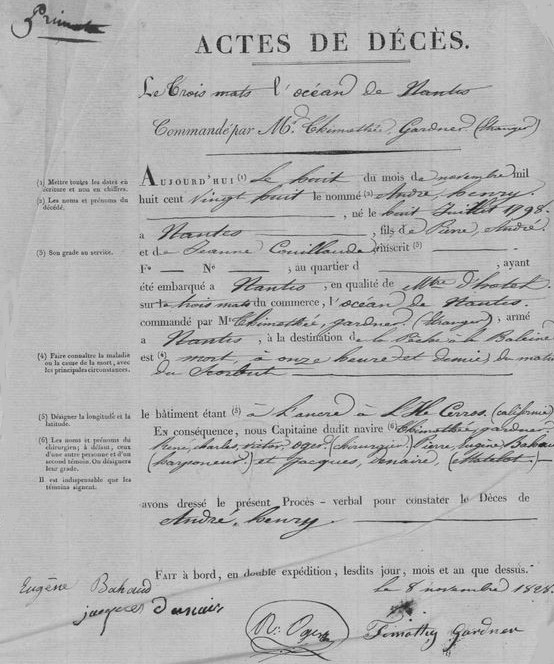 Primata
ACTES DE DÉCÈS.
Le Trois mats l'océan de Nantes
Commandé par Mr. Thimothée, Gardner (Stranger)
AUJOURD'HUI (1) Le huit du mois de novembre mil
huit cent vingt huit le nommé (2) André, henry.
, né le huit Juillet 1798.
a Nantes , fils de Pierre, André.
et de Jeanne Couillaude inscrit (3)
Fo N° , au quartier d , ayant
été embarqué a Nantes, en qualité de Mtre d'hotel
sur le trois mats du commerce, l'océan de Nantes.
commandé par Mr Thimothée, gardner. (Stranger), armé
a Nantes, à la destination de la Pêche à la Baleine
est (4) mort, à onze heure et demie, du matin
du Scorbut
le bâtiment étant (5) à L'ancre à L'Ile Cerros. (californie)
En conséquence, nous Capitaine dudit navire (6) Thimothée, gardner,
René, charles, victor, oger. (chirurgien) Pierre, Eugène Bahaud
(harponeur.) et Jacques, (Matelot.)
avons dressé le présent Procès-verbal pour constater le Décès de
André, henry.
FAIT à bord, en double expédition, lesdits jour, mois et an que dessus.
le 8 novembre 1828.
Eugène Bahaud
jacques
R. Oger
Timothy Gardner
(1) Mettre toutes les dates en
écriture et non en chiffres.
(2) Les noms et prénoms du
décédé.
(3) Son grade au service.
(4) Faire connaître la maladie
ou la cause de la mort, avec
les principales circonstances.
(5) Désigner la longitude et la
latitude.
(6) Les noms et prénoms du
chirurgien; à défaut, ceux
d'une autre personne et d'un
second témoin. On désignera
leur grade.
Il est indispensable que les
témoins signent.